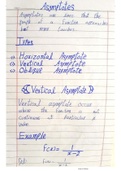 Asymptotes
Asymptotes are lines that the
graph of a function approaches
but never touches.
Types
Horizontal Asymptote
Vertical Asymptote
Oblique Asymptote
Vertical Asymptote
Vertical asymptote occurs
where the function is not
continuous it
Example
f(x) = 1/x-2